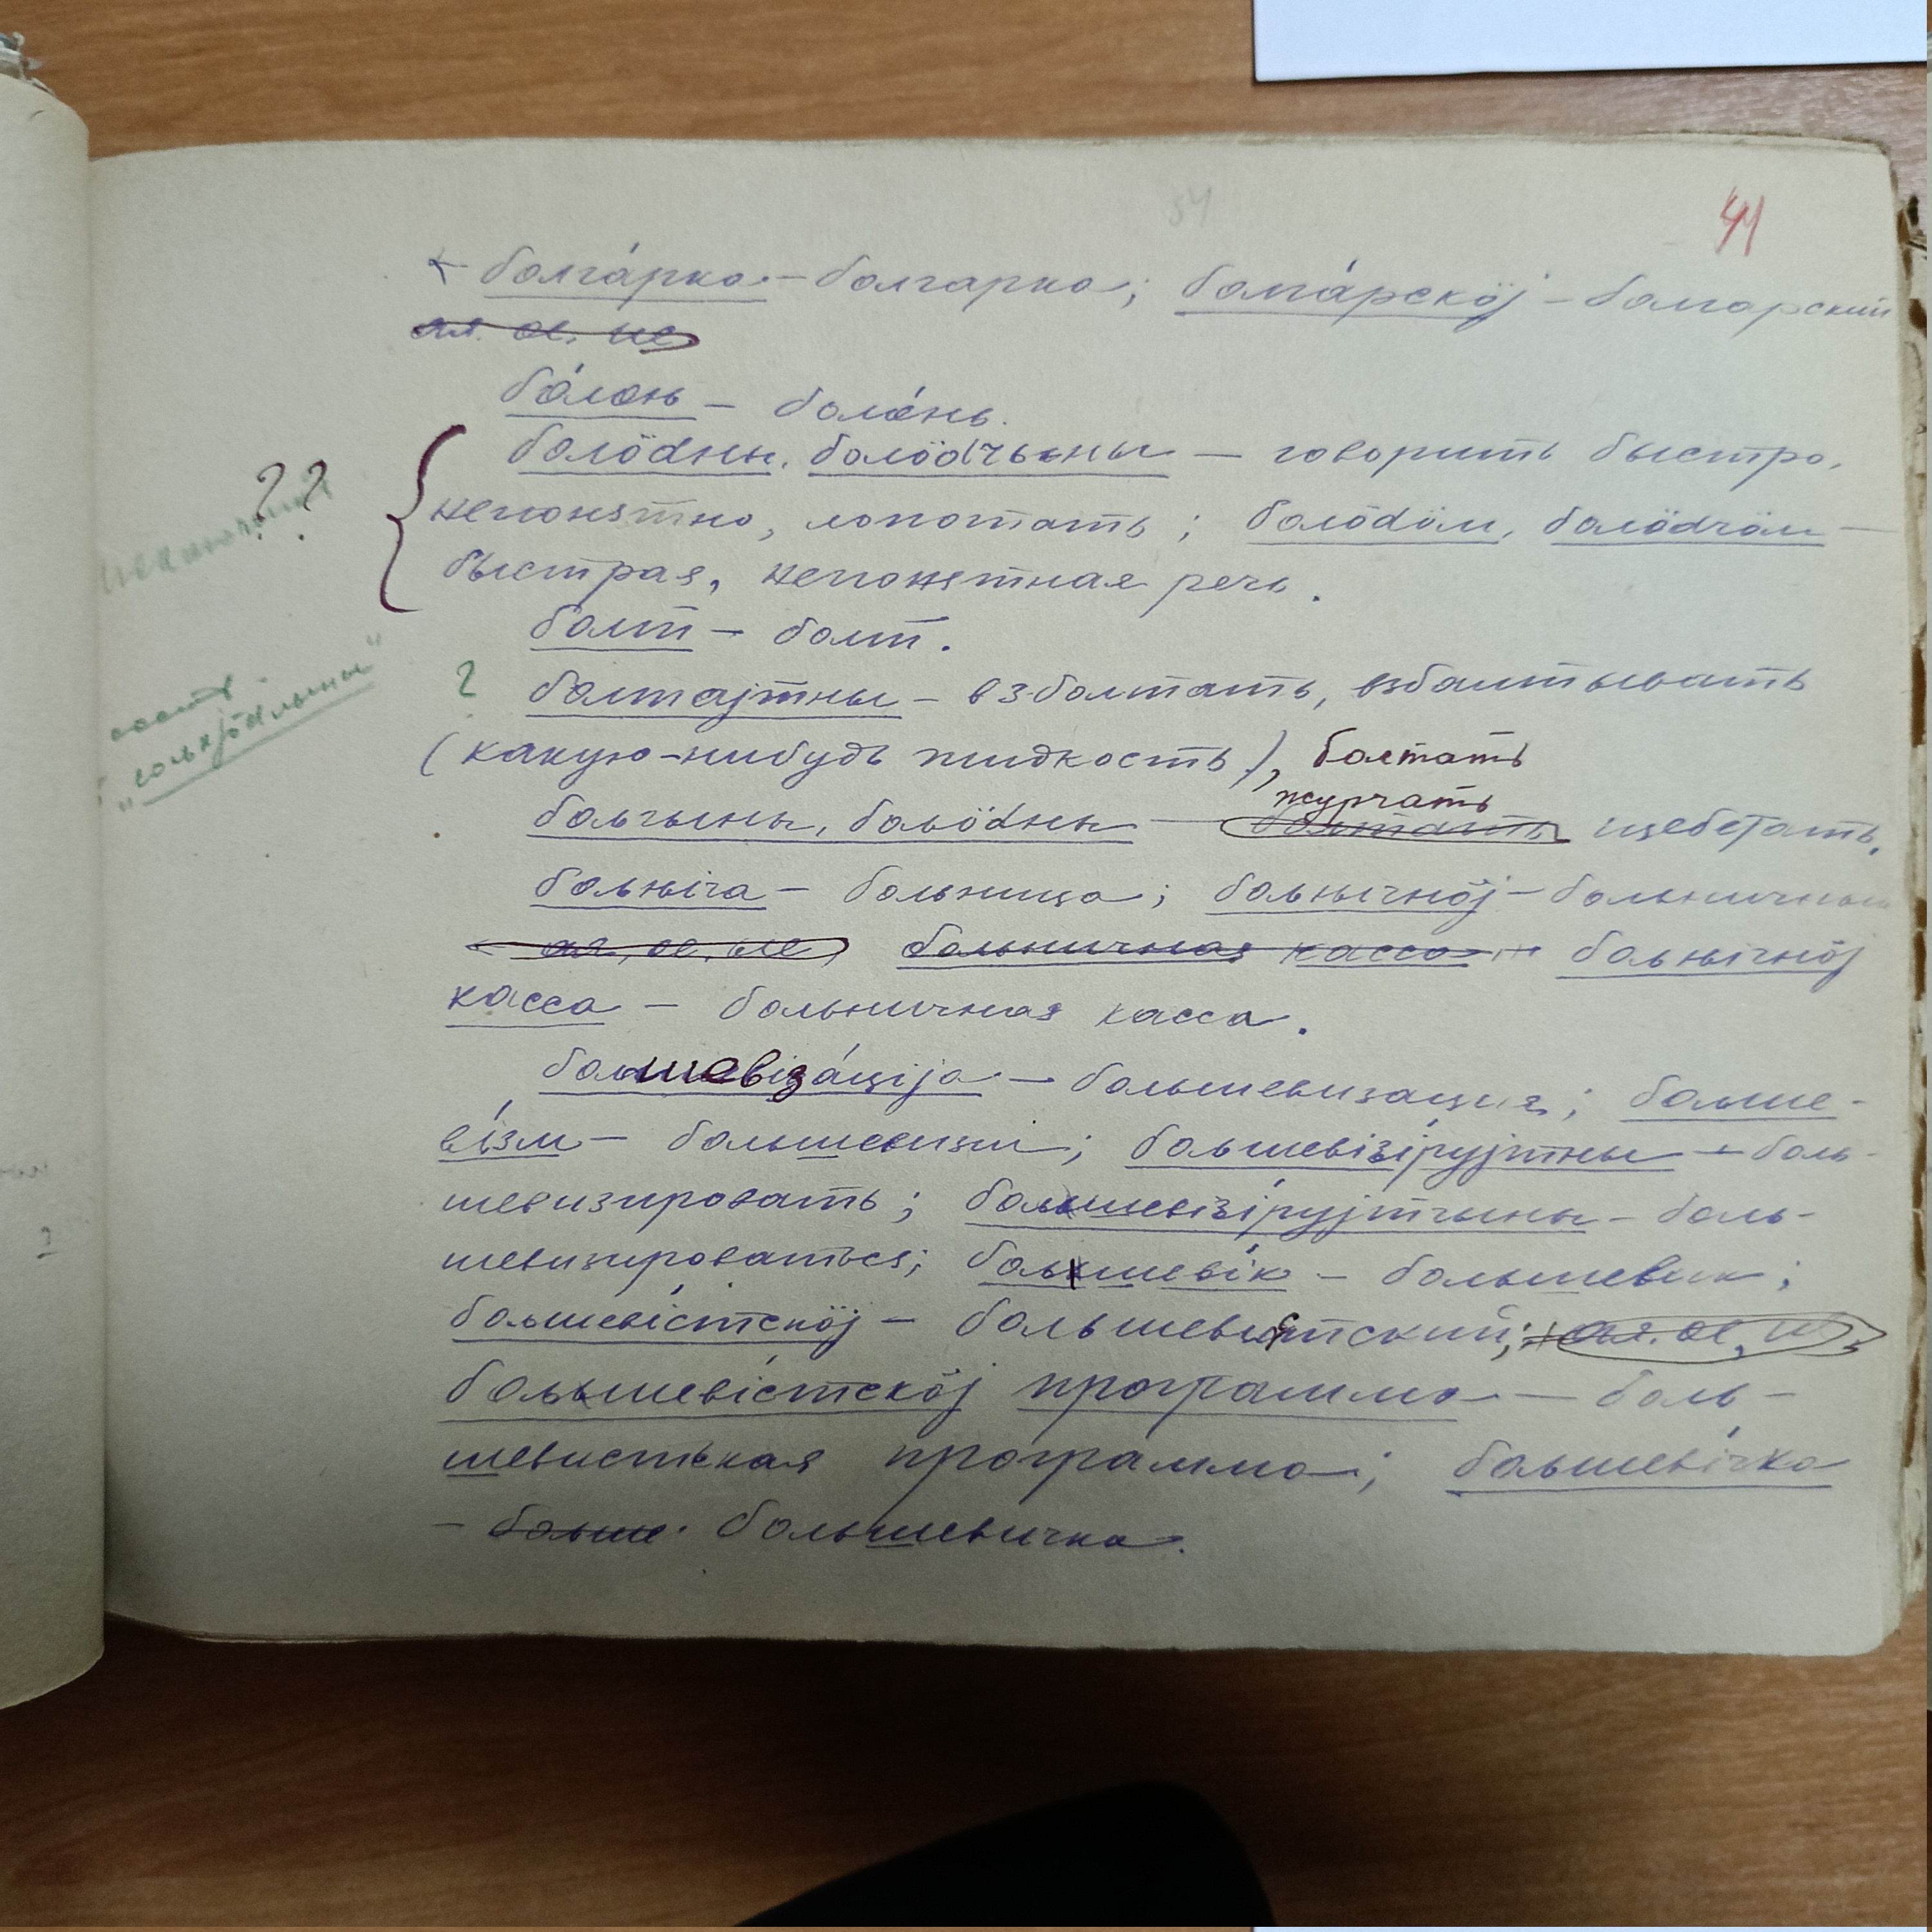 54
41
болга́рка – болгарка; болга́рскӧј – болгарский
ая. ое. ие
бо́лԍнь – боле́нь.
болӧdны, болӧdчыны – говорить быстро,
??
непонятно, лопотать; болӧdӧм, болӧdчӧм –
быстрая, непонятная речь.
болт – болт.
? болтајтны – взболтать, взбалтывать
(какую-нибудь жидкость), болтать
журчать
болгыны, болӧdны – болтать щебетать.
болԋіча – больница; болԋічнӧј – больничный
ая, ое, ие, больничная касса болԋічнӧј
касса – больничная касса.
болшевіза́ција – большевизация; больше-
ві́зм – большевизм; большевізі́рујтны – боль-
шевизировать; большевізі́рујтчыны – боль-
шевизироваться; большеві́к – большевик;
большеві́стскӧј – большевистский; ая. ое, и
большеві́стскӧј программа – боль-
шевистская программа; большеві́чка
– больше. большевичка.